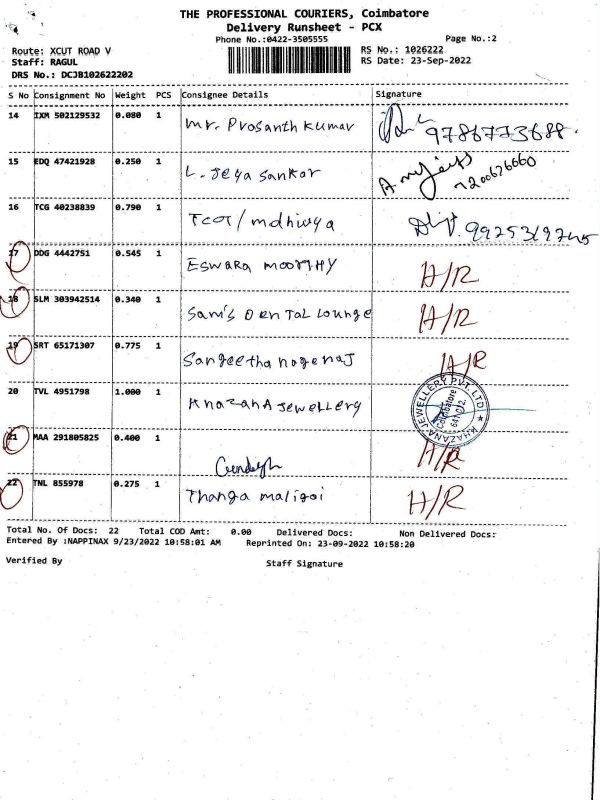 THE PROFESSIONAL COURIERS, Coimbatore
Delivery Runsheet - PCX
Phone No.:0422-3505555
Page No.:2
Route: XCUT ROAD V
RS No.: 1026222
Staff: RAGUL
RS Date: 23-Sep-2022
DRS No.: DCJB102622202
S No Consignment No Weight PCS Consignee Details Signature
14 IXM 502129532 0.080 1 Mr. Prosanth Kumar 9786773688
15 EDQ 47421928 0.250 1 L. Jeya Sankar 7200626660
16 TCG 40238839 0.790 1
17 DDG 4442751 0.545 1 ESWARA MOORTHY H/R
18 SLM 303942514 0.340 1 Sam's DENTAL LOUNGE H/R
19 SRT 65171307 0.775 1 Sangeetha nagaraj H/R
20 TVL 4951798 1.000 1 KhazanA Jewellery
KHAZANA JEWELLERY PVT. LTD.
Coimbatore
21 MAA 291805825 0.400 1 H/R
22 TNL 855978 0.275 1 Thanga maligai H/R
Total No. Of Docs: 22 Total COD Amt: 0.00 Delivered Docs: Non Delivered Docs:
Entered By :NAPPINAX 9/23/2022 10:58:01 AM Reprinted On: 23-09-2022 10:58:20
Verified By
Staff Signature